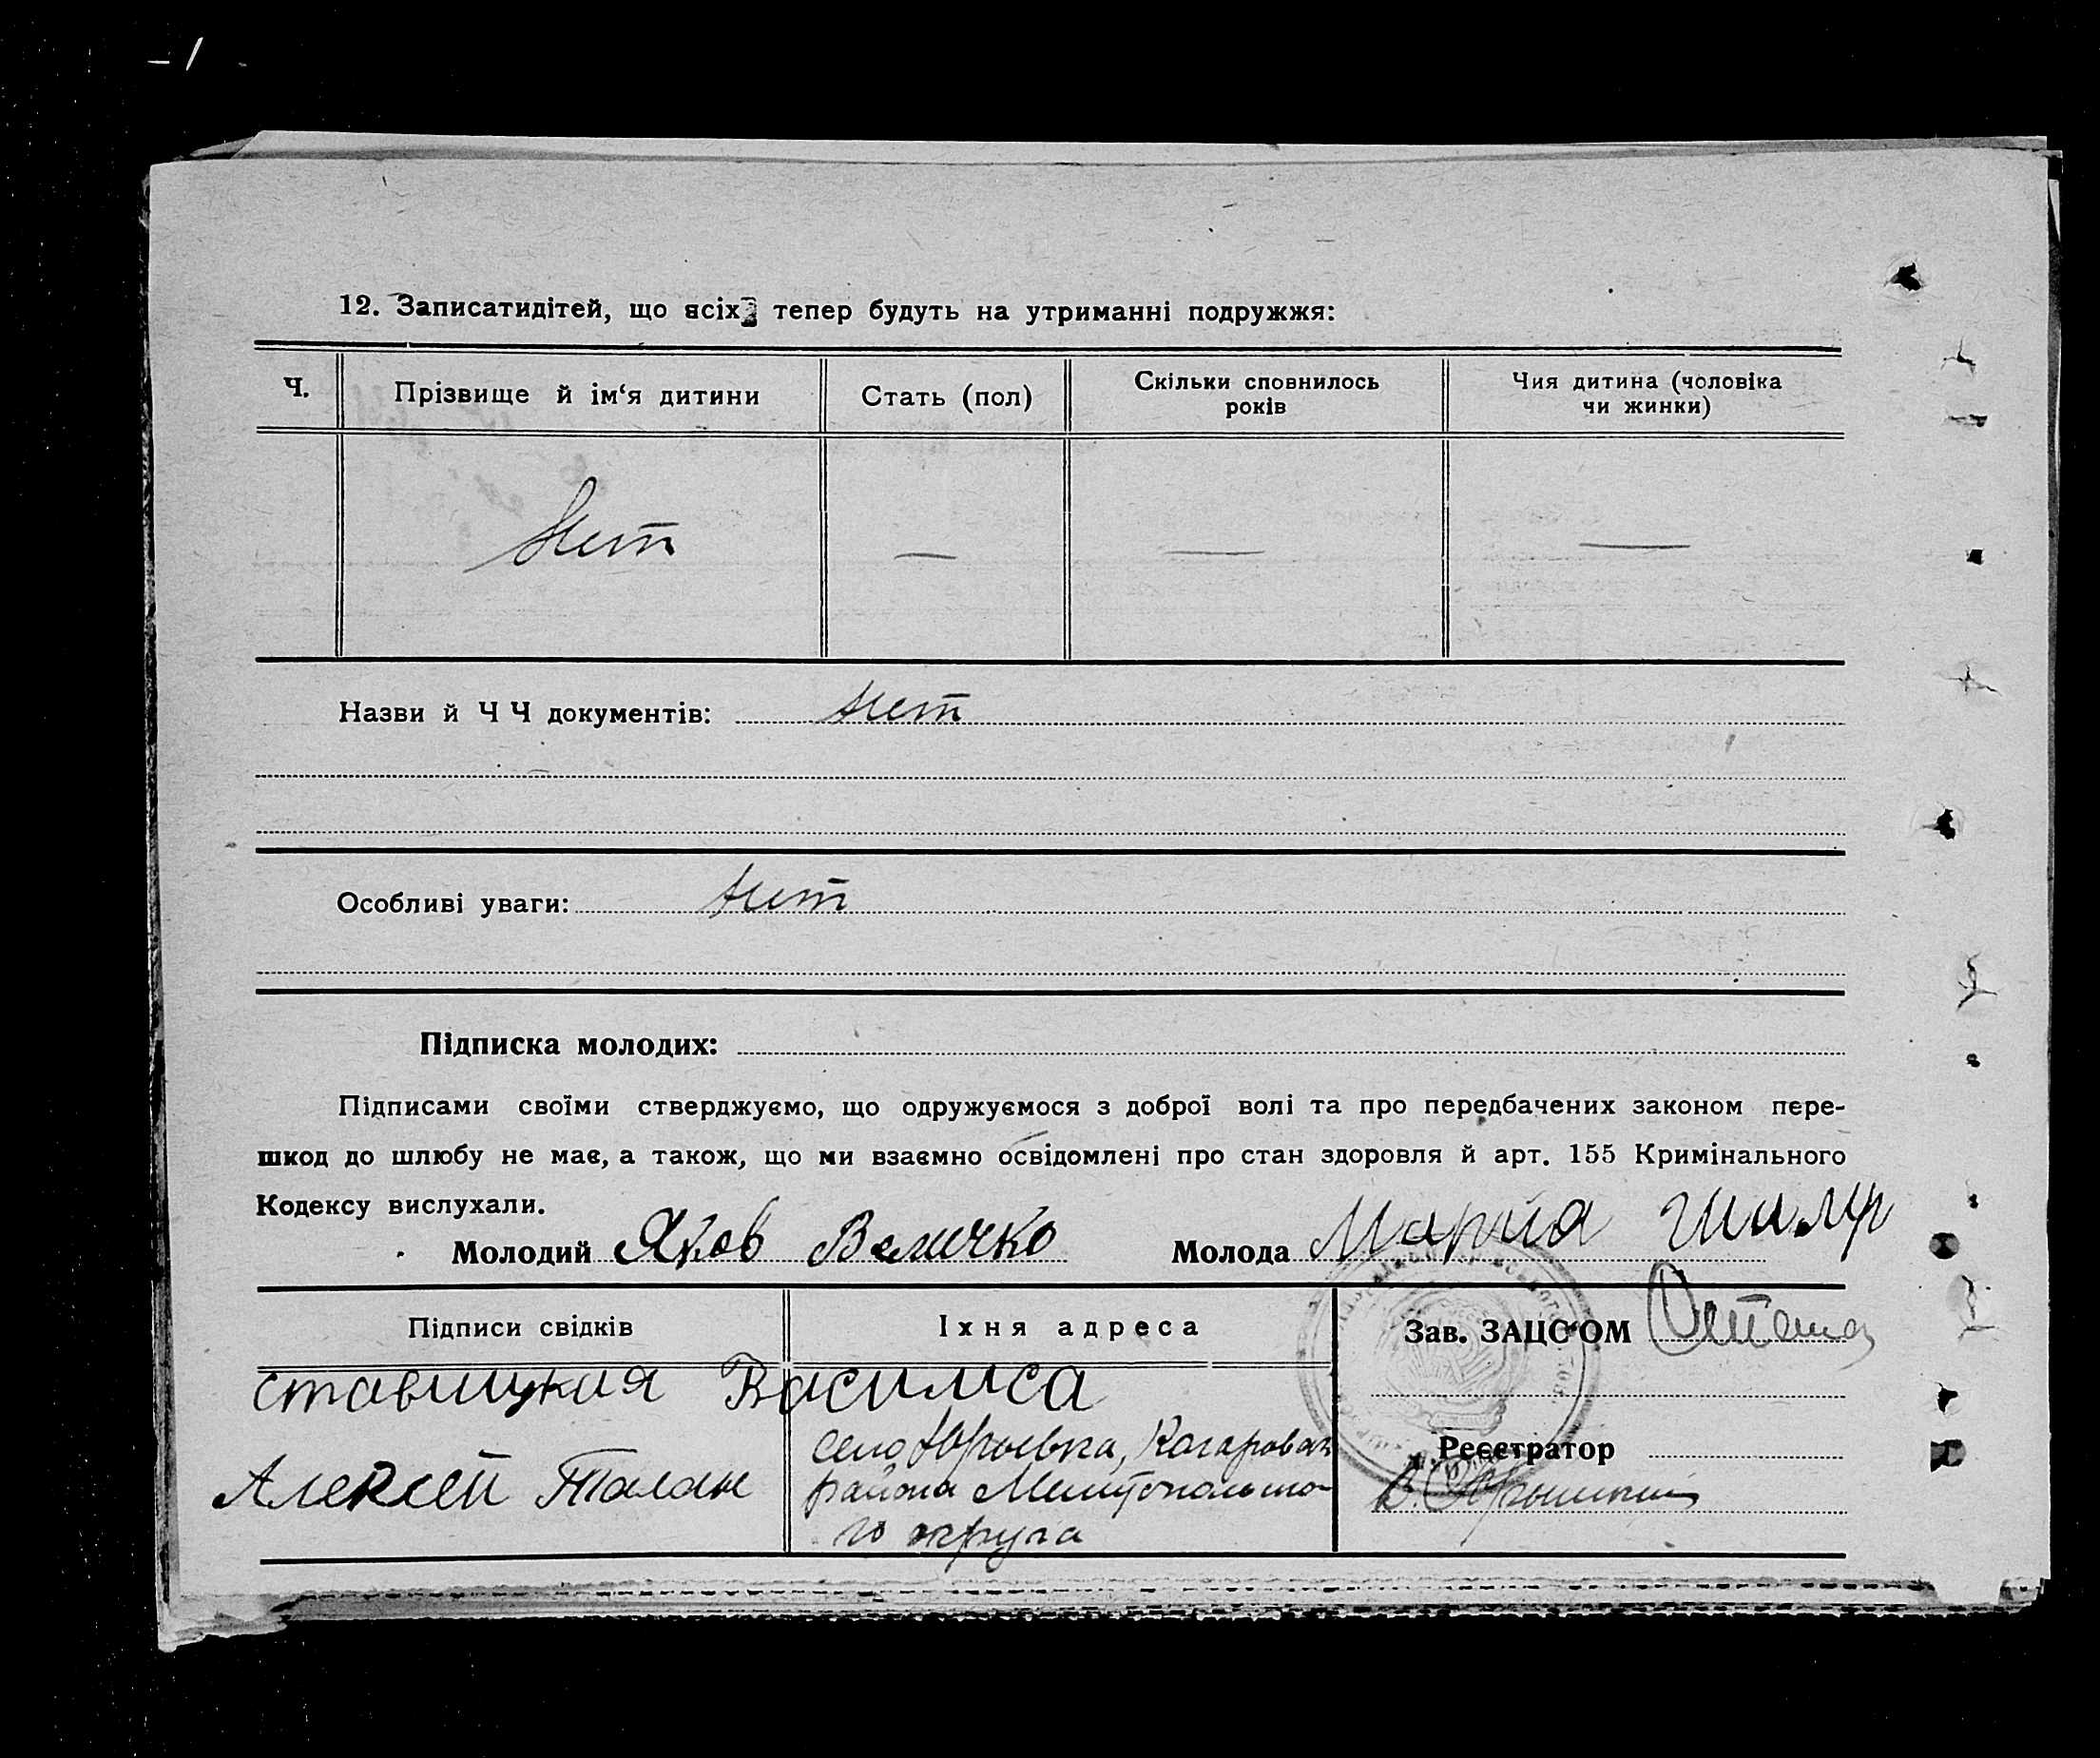 12. Записатидітей, що всіх тепер будуть на утриманні подружжя:
Ч. Прізвище й ім‘я дитини Стать (пол) Скільки сповнилось років Чия дитина (чоловіка чи жинки)
Нет — — —
Назви й Ч Ч документів: Нет
Особливі уваги: Нет
Підписка молодих:
Підписами своїми стверджуємо, що одружуємося з доброї волі та про передбачених законом пере-
шкод до шлюбу не має, а також, що ми взаємно освідомлені про стан здоровля й арт. 155 Кримінального
Кодексу вислухали.
Молодий Яков Величко Молода Мария
Підписи свідків Їхня адреса Зав. ЗАЦС‘ОМ
Ставицкая Василиса
село Юрьевка,
Реєстратор
Алексей Талан
района Мелитопольско-
го округа